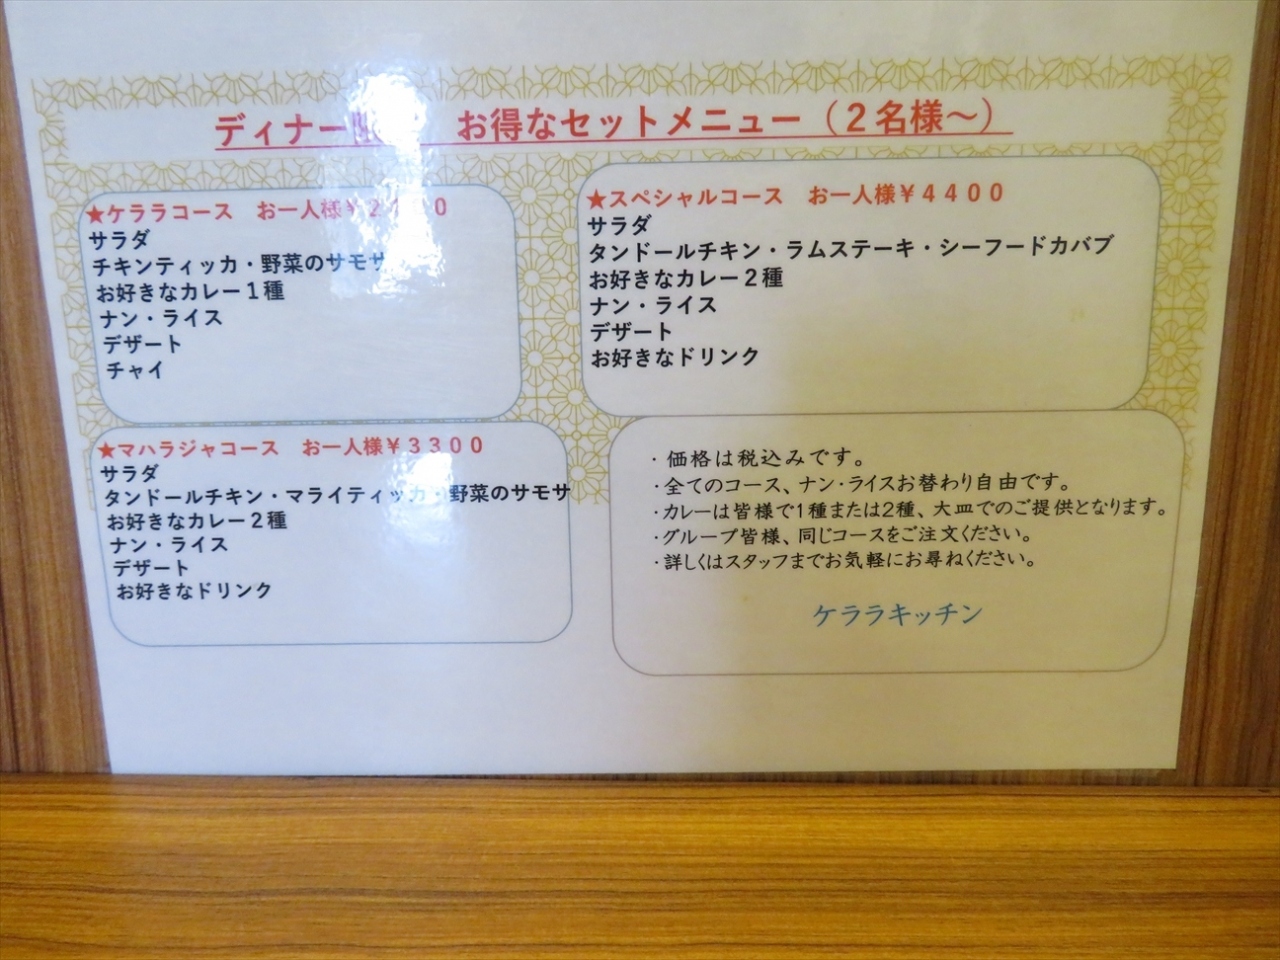 ディナー お得なセットメニュー（２名様～）
★ケララコース お一人様￥
サラダ
チキンティッカ・野菜のサモサ
お好きなカレー１種
ナン・ライス
デザート
チャイ
★スペシャルコース お一人様￥４４００
サラダ
タンドールチキン・ラムステーキ・シーフードカバブ
お好きなカレー２種
ナン・ライス
デザート
お好きなドリンク
★マハラジャコース お一人様￥３３００
サラダ
タンドールチキン・マライティッカ・野菜のサモサ
お好きなカレー２種
ナン・ライス
デザート
お好きなドリンク
・価格は税込みです。
・全てのコース、ナン・ライスお替わり自由です。
・カレーは皆様で1種または2種、大皿でのご提供となります。
・グループ皆様、同じコースをご注文ください。
・詳しくはスタッフまでお気軽にお尋ねください。
ケララキッチン